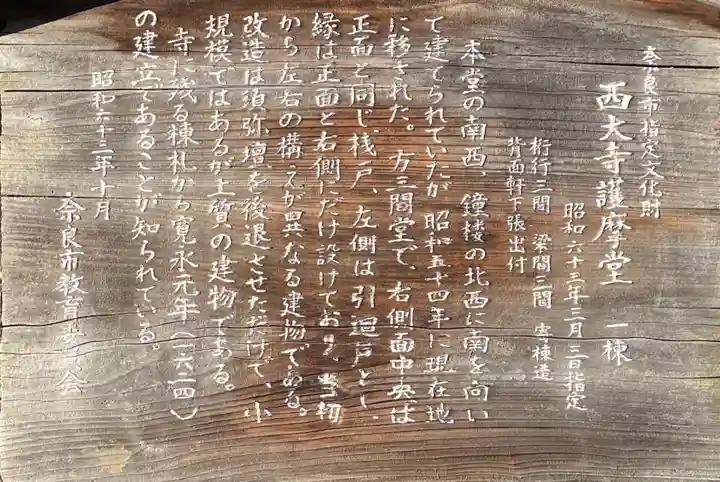 奈良市指定文化財
西大寺護摩堂 一棟
昭和六十三年三月三日指定
桁行三間 梁間三間 宝棟造
背面軒下張出付
本堂の南西、鐘楼の北西に南を向い
て建てられていたが昭和五十四年に現在地
に移された。方三間堂で、右側面中央は
正面と同じ桟戸、左側は引違戸とし、
縁は正面と右側にだけ設けており、当初
から左右の構えが異なる建物である。
改造は須弥壇を後退させただけで、小
規模ではあるが上質の建物である。
寺に残る棟札から寛永元年(一六二四)
の建立であることが知られている。
昭和六十三年十月
奈良市教育委員会